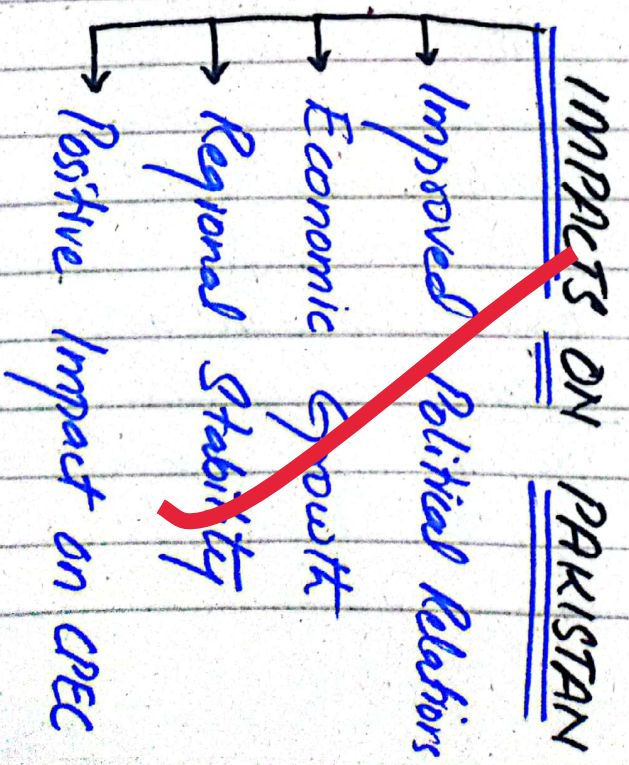 IMPACTS ON PAKISTAN
Improved Political Relations
Economic Growth
Regional Stability
Positive Impact on CPEC